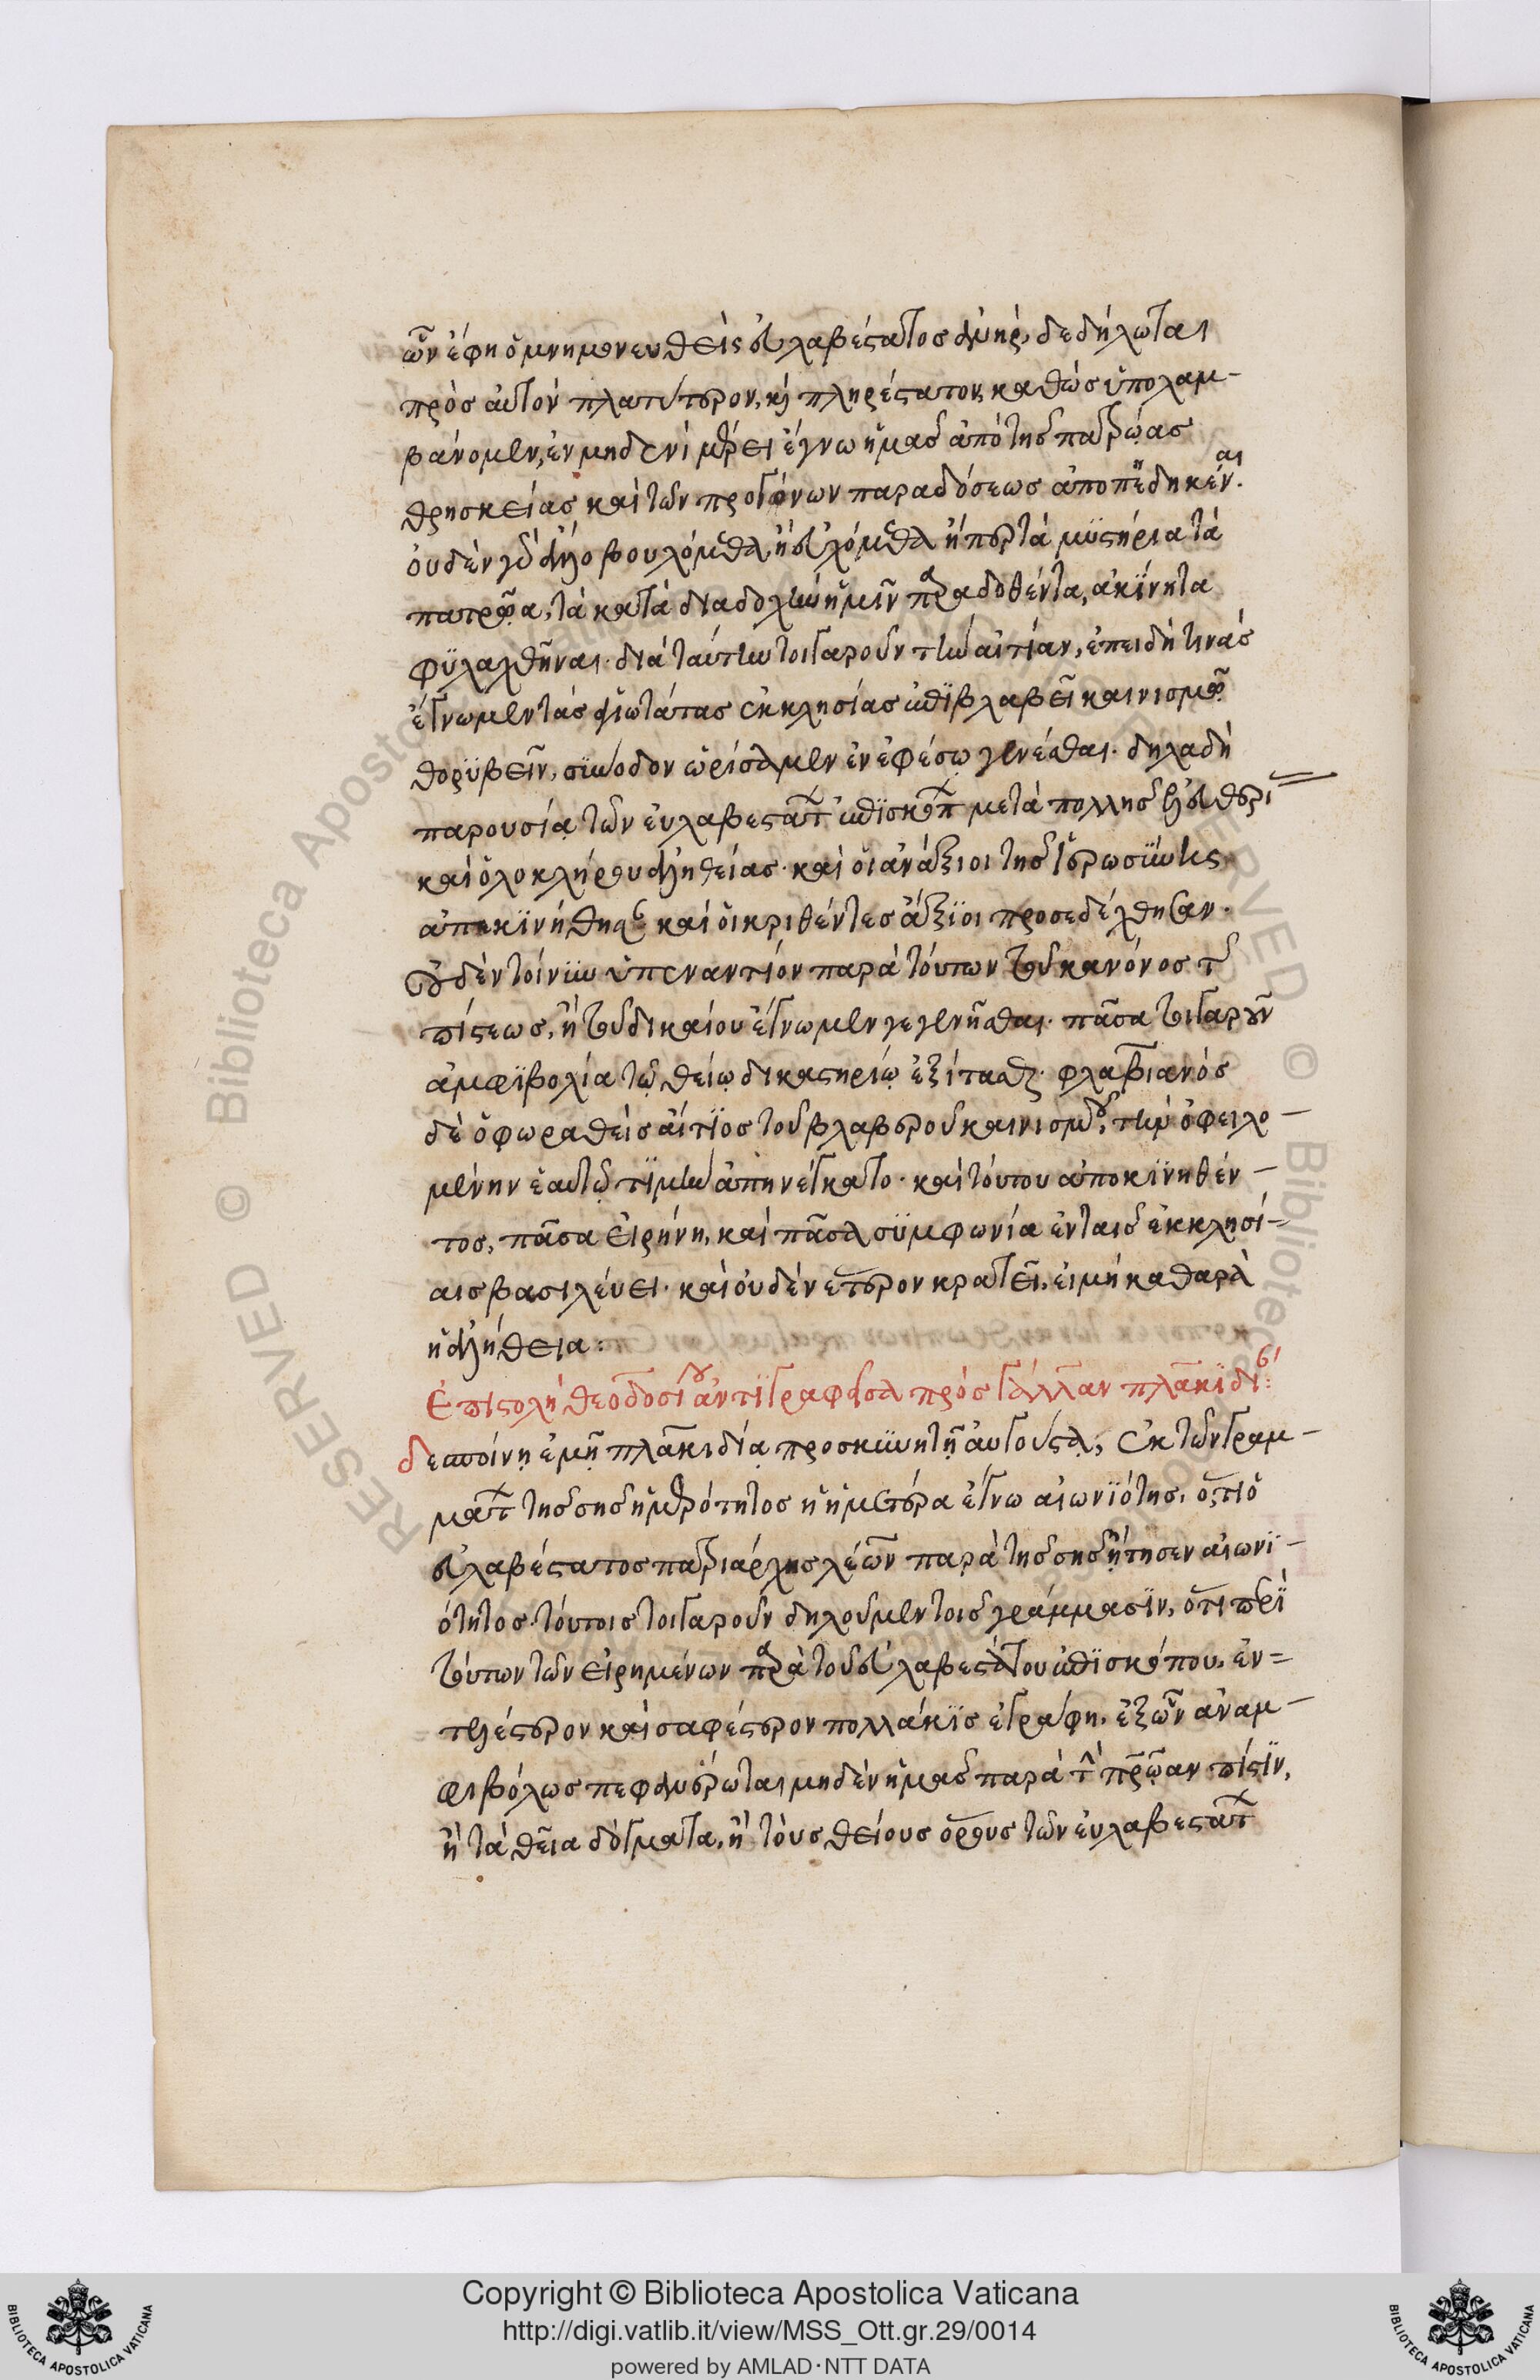 ὧν ἔφη ὁ μνημονευθεὶς εὐλαβέστατος ἀνήρ, δεδήλωται
πρὸς αὐτὸν πλατύτερον, καὶ πληρέστατον, καθὼς ὑπολαμ-
βάνομεν, ἐν μηδενὶ μέρει ἔγνω ἡμᾶς ἀπὸ τῆς πατρώας
θρησκείας καὶ τῶν προγόνων παραδόσεως ἀποπεδηκέναι.
οὐδὲν γὰρ ἄλλο βουλόμεθα, ἢ εὐχόμεθα ἤπερ τὰ μυστήρια τὰ
πατρῶα, τὰ κατὰ διαδοχὴν ἡμῖν παραδοθέντα, ἀκίνητα
φυλαχθῆναι. διὰ ταύτην τοιγαροῦν τὴν αἰτίαν, ἐπειδή τινας
ἔγνωμεν τὰς ἁγιωτάτας ἐκκλησίας ἐπιβλαβεῖ καινισμῷ
θορυβεῖν, σύνοδον ὡρίσαμεν ἐν ἐφέσῳ γενέσθαι. δηλαδὴ
παρουσίᾳ τῶν εὐλαβεστάτ ἐπισκόπ μετὰ πολλῆς ἐξελευθερι
καὶ ὁλοκλήρου ἀληθείας. καὶ οἱ ἀνάξιοι τῆς ἱερωσύνης
ἀπεκινήθησαν καὶ οἱ κριθέντες ἄξιοι προσεδέχθησαν.
Οὐδὲν τοίνυν ὑπεναντίον παρὰ τούτων τοῦ κανόνος τῆς
πίστεως, ἢ τοῦ δικαίου ἔγνωμεν γεγενῆσθαι. πᾶσα τοιγαροῦν
ἀμφιβολία τῷ θείῳ δικαστηρίῳ ἐξίτασται. φλαβιανὸς
δὲ ὁ φωραθεὶς αἴτιος τοῦ βλαβεροῦ καινισμοῦ, τὴν ὀφειλο-
μένην ἑαυτῷ τιμὴν ἀπηνέγκατο. καὶ τούτου ἀποκινηθέν-
τος, πᾶσα εἰρήνη, καὶ πᾶσα συμφωνία ἐν ταῖς ἐκκλησί-
αις βασιλεύει. καὶ οὐδὲν ἕτερον κρατεῖ, εἰ μὴ καθαρὰ
ἡ ἀλήθεια:
Ἐπιστολὴ θεοδοσίου ἀντιγραφεῖσα πρὸς γάλλαν πλακιδί:
δεσποίνῃ ἐμῇ πλακιδίᾳ προσκυνητῇ αὐγούστᾳ, Ἐκ τῶν γραμ-
μάτ τῆς σῆς ἡμερότητος ἡ ἡμετέρα ἔγνω αἰωνιότης, ὅτι ὁ
εὐλαβέστατος πατριάρχης λέων παρὰ τῆς σῆς ᾔτησεν αἰωνι-
ότητος. τούτοις τοιγαροῦν δηλοῦμεν τοῖς γράμμασιν, ὅτι περὶ
τούτων τῶν εἰρημένων παρὰ τοῦ εὐλαβεστάτου ἐπισκόπου, ἐν-
τελέστερον καὶ σαφέστερον πολλάκις ἐγράφη, ἐξ ὧν ἀναμ-
φιβόλως πεφανέρωται μηδὲν ἡμᾶς παρὰ τὴν πρῴαν πίστιν,
ἢ τὰ θεῖα δόγματα, ἢ τοὺς θείους ὅρους τῶν εὐλαβεστάτ
Copyright © Biblioteca Apostolica Vaticana
http://digi.vatlib.it/view/MSS_Ott.gr.29/0014
powered by AMLAD·NTT DATA